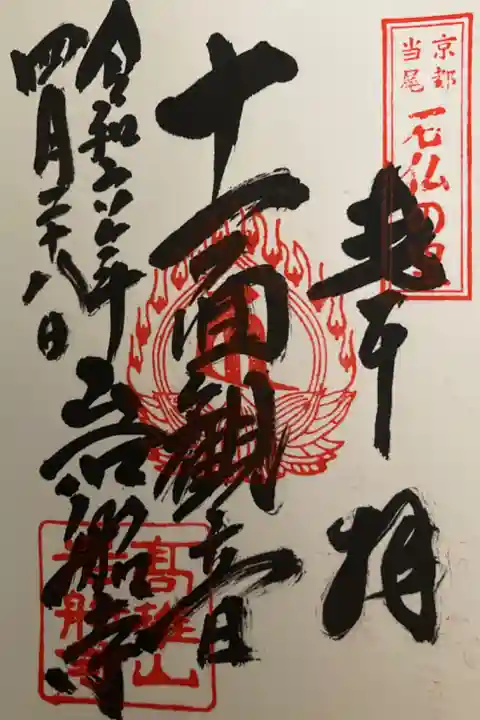 京都
当尾
石仏の里
奉拝
十一面観音
令和六年
四月二十八日
岩船寺
高雄山
岩船寺